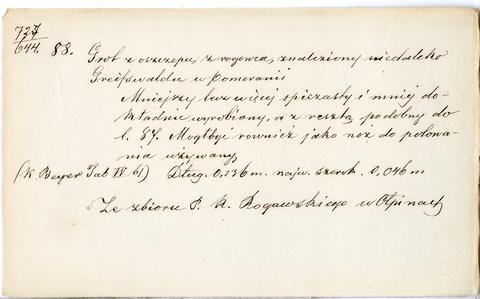 727
644. 88. Grot z oszczepu, z rogowca, znaleziony niedaleko
Greifswaldu w Pomeranii
Mniejszy lecz więcej spiczasty i mniej do-
kładnie wyrobiony, a z resztą podobny do
l. 87. Mógłbyć rownież jako noż do polowa-
nia używany
(K Beyer Tab IV 61) Dług. 0,136 m. najw. szerok. 0,046 m
Ze zbioru P. K. Rogawskiego w Ołpinach